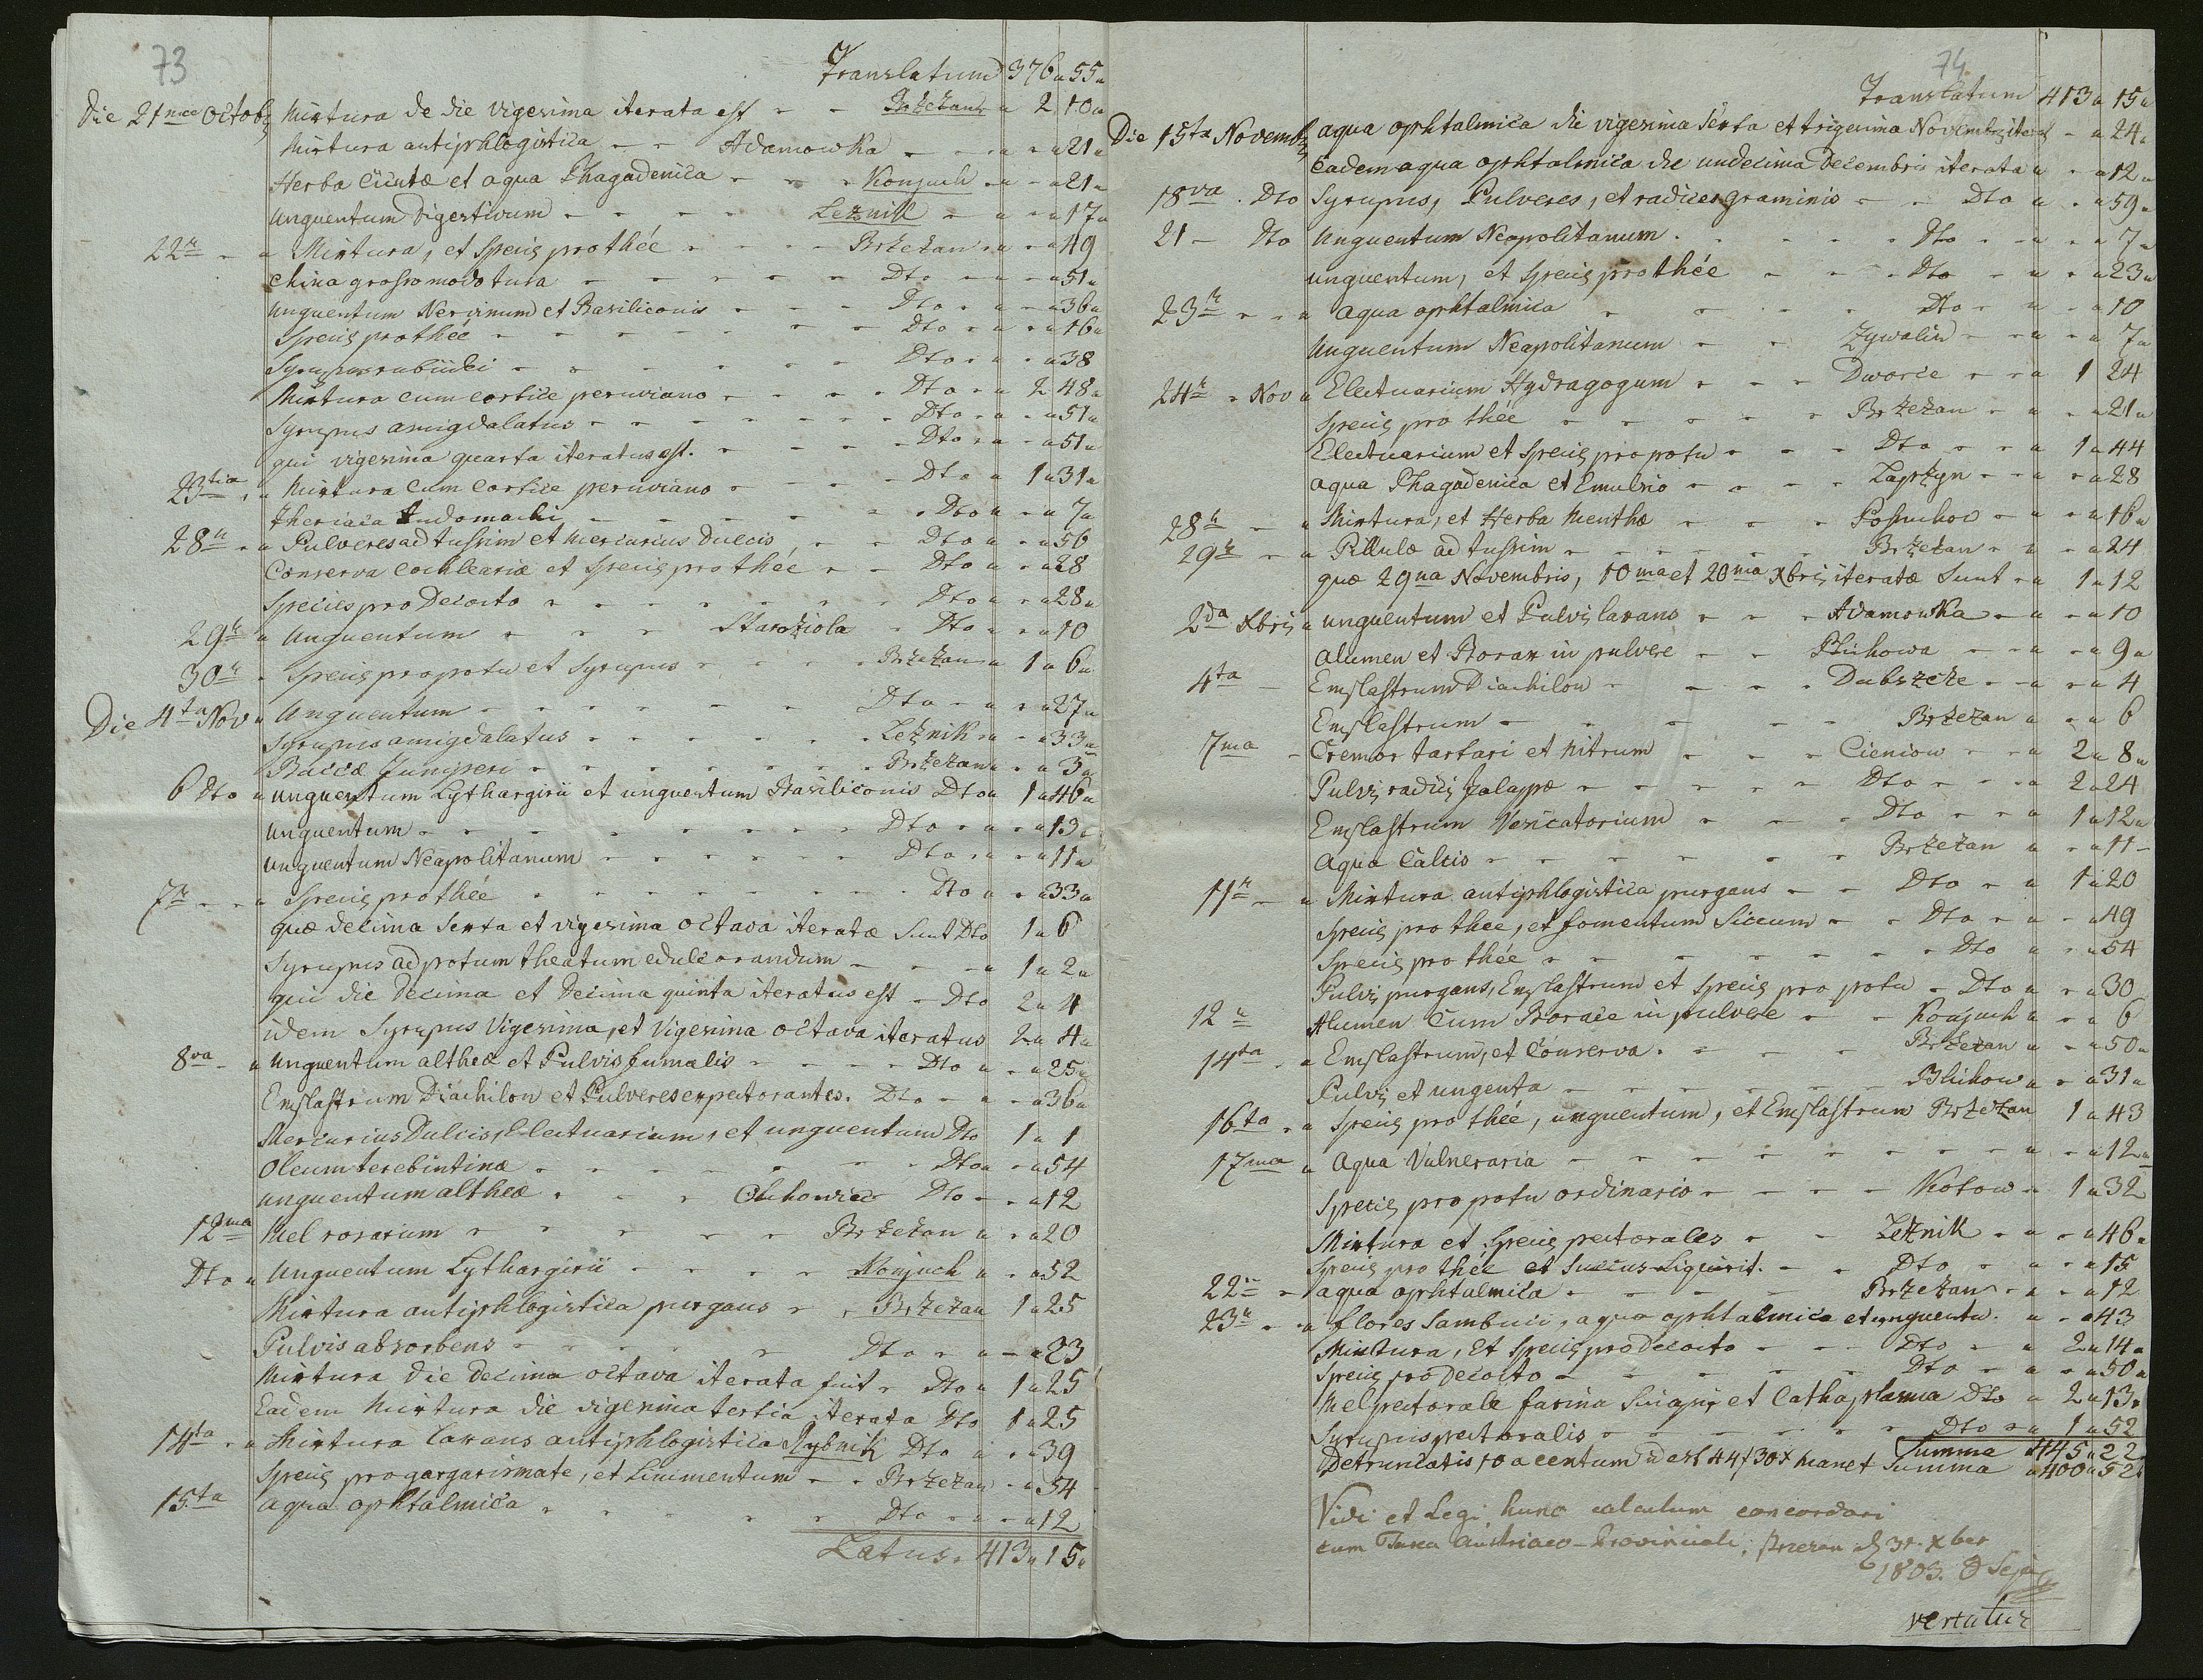 73
Translatum 376 " 55 "
Die 21ma Octob Mixtura de die vigesima iterata est - - Brzeżan " 2 10 "
Mixtura antiphlogistica - - Adamowka - - " - " 21 "
Herba Cicutæ et aqua Phagadenica - - - Konjuch - " - " 21 "
Unguentum Digestivum - - - - Leżnik - " - " 17 "
22 " - " Mixtura, et Species pro thée - - - - Brzeżan " " - " 49
China grosso modo tusa - - - - - - Dto - " - " 51 "
Unguentum Nervinum et Basiliconis - - - Dto - " - " 36 "
Species pro thée - - - - - - - - Dto - " - " 16 "
Syrupus rubi idei - - - - - - - Dto - " - " 38
Mixtura cum cortice peruviano - - - - Dto - " 2 48 "
Syrupus amigdalatus - - - - - - - Dto - " - " 51 "
qui vigesima quarta iteratus est. - - - - Dto - " - " 51 "
23tia " Mixtura cum Cortice peruviano - - - - Dto " 1 " 31 "
Theriaca Andomachi - - - - - - Dto " - " 7 "
28 " - " Pulveres ad tussim et Mercurius Dulcis - - Dto " - " 56
Conserva Cochleariæ et Species pro thée - - Dto " - " 28
Species pro Decocto - - - - - - - Dto " - " 28 "
29 " " Unguentum - - - Staroziola - Dto " - " 10
30 " - Species pro potu et Syrupus - - - - Brzeżan " 1 " 6 "
Die 4ta Nov " Unguentum - - - - - - - Dto - " - " 27 "
Syrupus amigdalatus - - - - - - Leżnik " - " 33 "
Baccæ Juniperi - - - - - - - Brzeżan " - " 3 "
6 Dto " unguentum Lythargirii et unguentum Basiliconis Dto " 1 " 46 "
Unguentum - - - - - - - - - Dto - " - " 13 "
Unguentum Neapolitanum - - - - - - Dto " - " 11 "
7 " - - " Species pro thée - - - - - - - - Dto " - " 33 "
quæ decima Sexta et vigesima octava iteratæ Sunt Dto 1 " 6
Syrupus ad potum theatum edulcorandum - - - " 1 " 2 "
qui die Decima et Decima quinta iteratus est - Dto 2 " 4
idem Syrupus Vigesima, et Vigesima octava iteratus 2 " 4 "
8va - " Unguentum altheæ et Pulvis fumalis - - - - Dto " - " 25 "
Emplastrum Diachilon et Pulveres expectorantes. Dto - " - " 36 "
Mercurius Dulcis, Electuarium, et unguentum Dto 1 " 1
Oleum terebintinæ - - - - - - - - Dto " - " 54
unguentum altheæ - - - Olchowiec Dto - - " 12
12ma Mel rosarum - - - - - - Brzeżan " - " 20
Dto " Unguentum Lythargirii - - - - Konjuch " - " 52
Mixtura antiphlogistica purgans - - Brzeżan 1 " 25
Pulvis absorbens - - - - - - Dto - " - " 23
Mixtura die Decima octava iterata fuit - Dto " 1 " 25
Eadem Mixtura die vigesima tertia iterata Dto 1 " 25
14ta - " Mixtura Laxans antiphlogistica Rybnik Dto " - " 39
Species pro gargarismate, et Linimentum - - Brzeżan - " 54
15ta aqua ophtalmica - - - - - - Dto - " - " 12
Latus - 413 " 15 "
74
Translatum 413 " 15 "
Die 15ta Novemb aqua ophtalmica die vigesima Sexta et trigesima Novembr iterat - " 24 "
Eadem aqua ophtalmica die undecima Decembris iterata " - " 12 "
18va . Dto Syrupus, Pulveres, et radices graminis - - Dto " - " 59 "
21 - Dto Unguentum Neapolitanum. - - - - - Dto - " - " 7 "
unguentum, et Species pro thée - - - Dto - " - " 23 "
23 " - - " aqua ophtalmica - - - - - Dto - " - " 10
Unguentum Neapolitanum - - Zywalin - - " - " 7 "
24 " - Nov " Electuarium Hydragogum - - - Dworce - - " 1 24
Species pro thée - - - - - Brzeżan - " - " 21 "
Electuarium et Species pro potu - - - Dto - - " 1 " 44
aqua Phagadenica et Emulsio - - - - Lapszyn - - " - " 28
28 " - " Mixtura, et Herba Menthæ - - - Posuchow - " - " 16 "
29 " - " Pillulæ ad tussim - - - - - - Brzeżan - " - " 24
quæ 29na Novembris, 10ma et 20ma Xbris iteratæ Sunt - " 1 " 12
2da Xbris " unguentum et Pulvis laxans - - - Adamowka - " - " 10
Alumen et Borax in pulvere - - Plichowa - - " - " 9 "
4ta - Emplastrum Diachilon - - - - Dubszcze - - " - " 4
Emplastrum - - - - - - Brzeżan " - " 6
7ma - Cremor tartari et Nitrum - - - Cieniow - - " 2 " 8 "
Pulvis radicis Jalappæ - - - - - Dto - - - " 2 " 24
Emplastrum Vesicatorium - - - Dto - - " 1 " 12 "
Aqua Calcis - - - - - - - Brzeżan " - " 11 -
11 " - " Mixtura antiphlogistica purgans - - Dto - " 1 " 20
Species pro thee, et fomentum Siccum - - Dto - " - " 49
Species pro thée - - - - - - - - Dto " - " 54
Pulvis purgans, Emplastrum et Species pro potu - Dto " - " 30
12 " Alumen Cum Borace in pulvere - - Konjuch " - " 6
14ta - " Emplastrum, et Conserva. - - - - Brzeżan " - " 50 "
Pulvis et ungenta - - - - - - - Plichow " - " 31 "
16ta - " Species pro thée, unguentum, et Emplastrum Brzeżan 1 " 43
17ma " Aqua Vulneraria - - - - - - - - - - " - " 12 "
Species pro potu ordinario - - - - Kotow - 1 " 32
Mixtura et Species pectorales - - Leżnik - " - " 46 "
Species pro thée et Succus Liquirit. - - Dto - " - " 15
22 " - aqua ophtalmica - - - - - Brzeżan - " - " 12
23 " - " flores Sambuci, aqua ophtalmica et unguentu. " - " 43
Mixtura, Et Species pro decocto - - - Dto - " 2 " 14 "
Species pro decocto - - - - - - Dto - " - " 50 "
Mel pectorale farina Sinapis et Cathaplasma Dto " 2 " 13 "
Syrupus pectoralis - - - - - - - Dto - " 1 " 52
Summa 445 " 22
Detruncatis 10 a centum id est 44 f 30 x manet Summa " 400 " 52
Vidi et Legi, hunc calculum concordari
cum Taxa Austriaco-Provinciali, Brzezan 31. Xber
1803.
vertatur